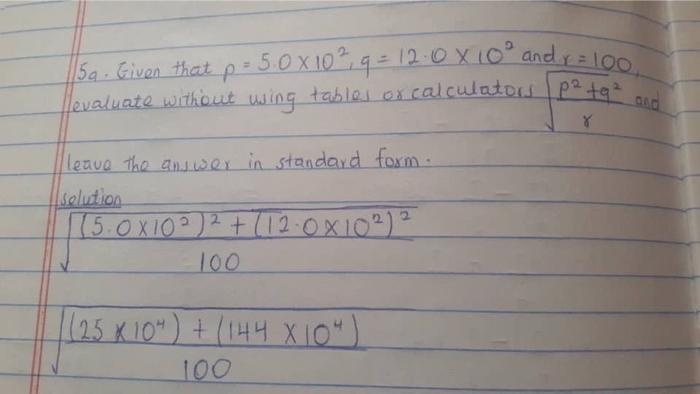 5a. Given that p = 5.0 X 10², q = 12.0 X 10² and r = 100,
evaluate without using tables or calculators √(p² + q² / r) and
leave the answer in standard form.
solution
√((5.0 X 10²)² + (12.0 X 10²)² / 100)
√((25 X 10⁴) + (144 X 10⁴) / 100)